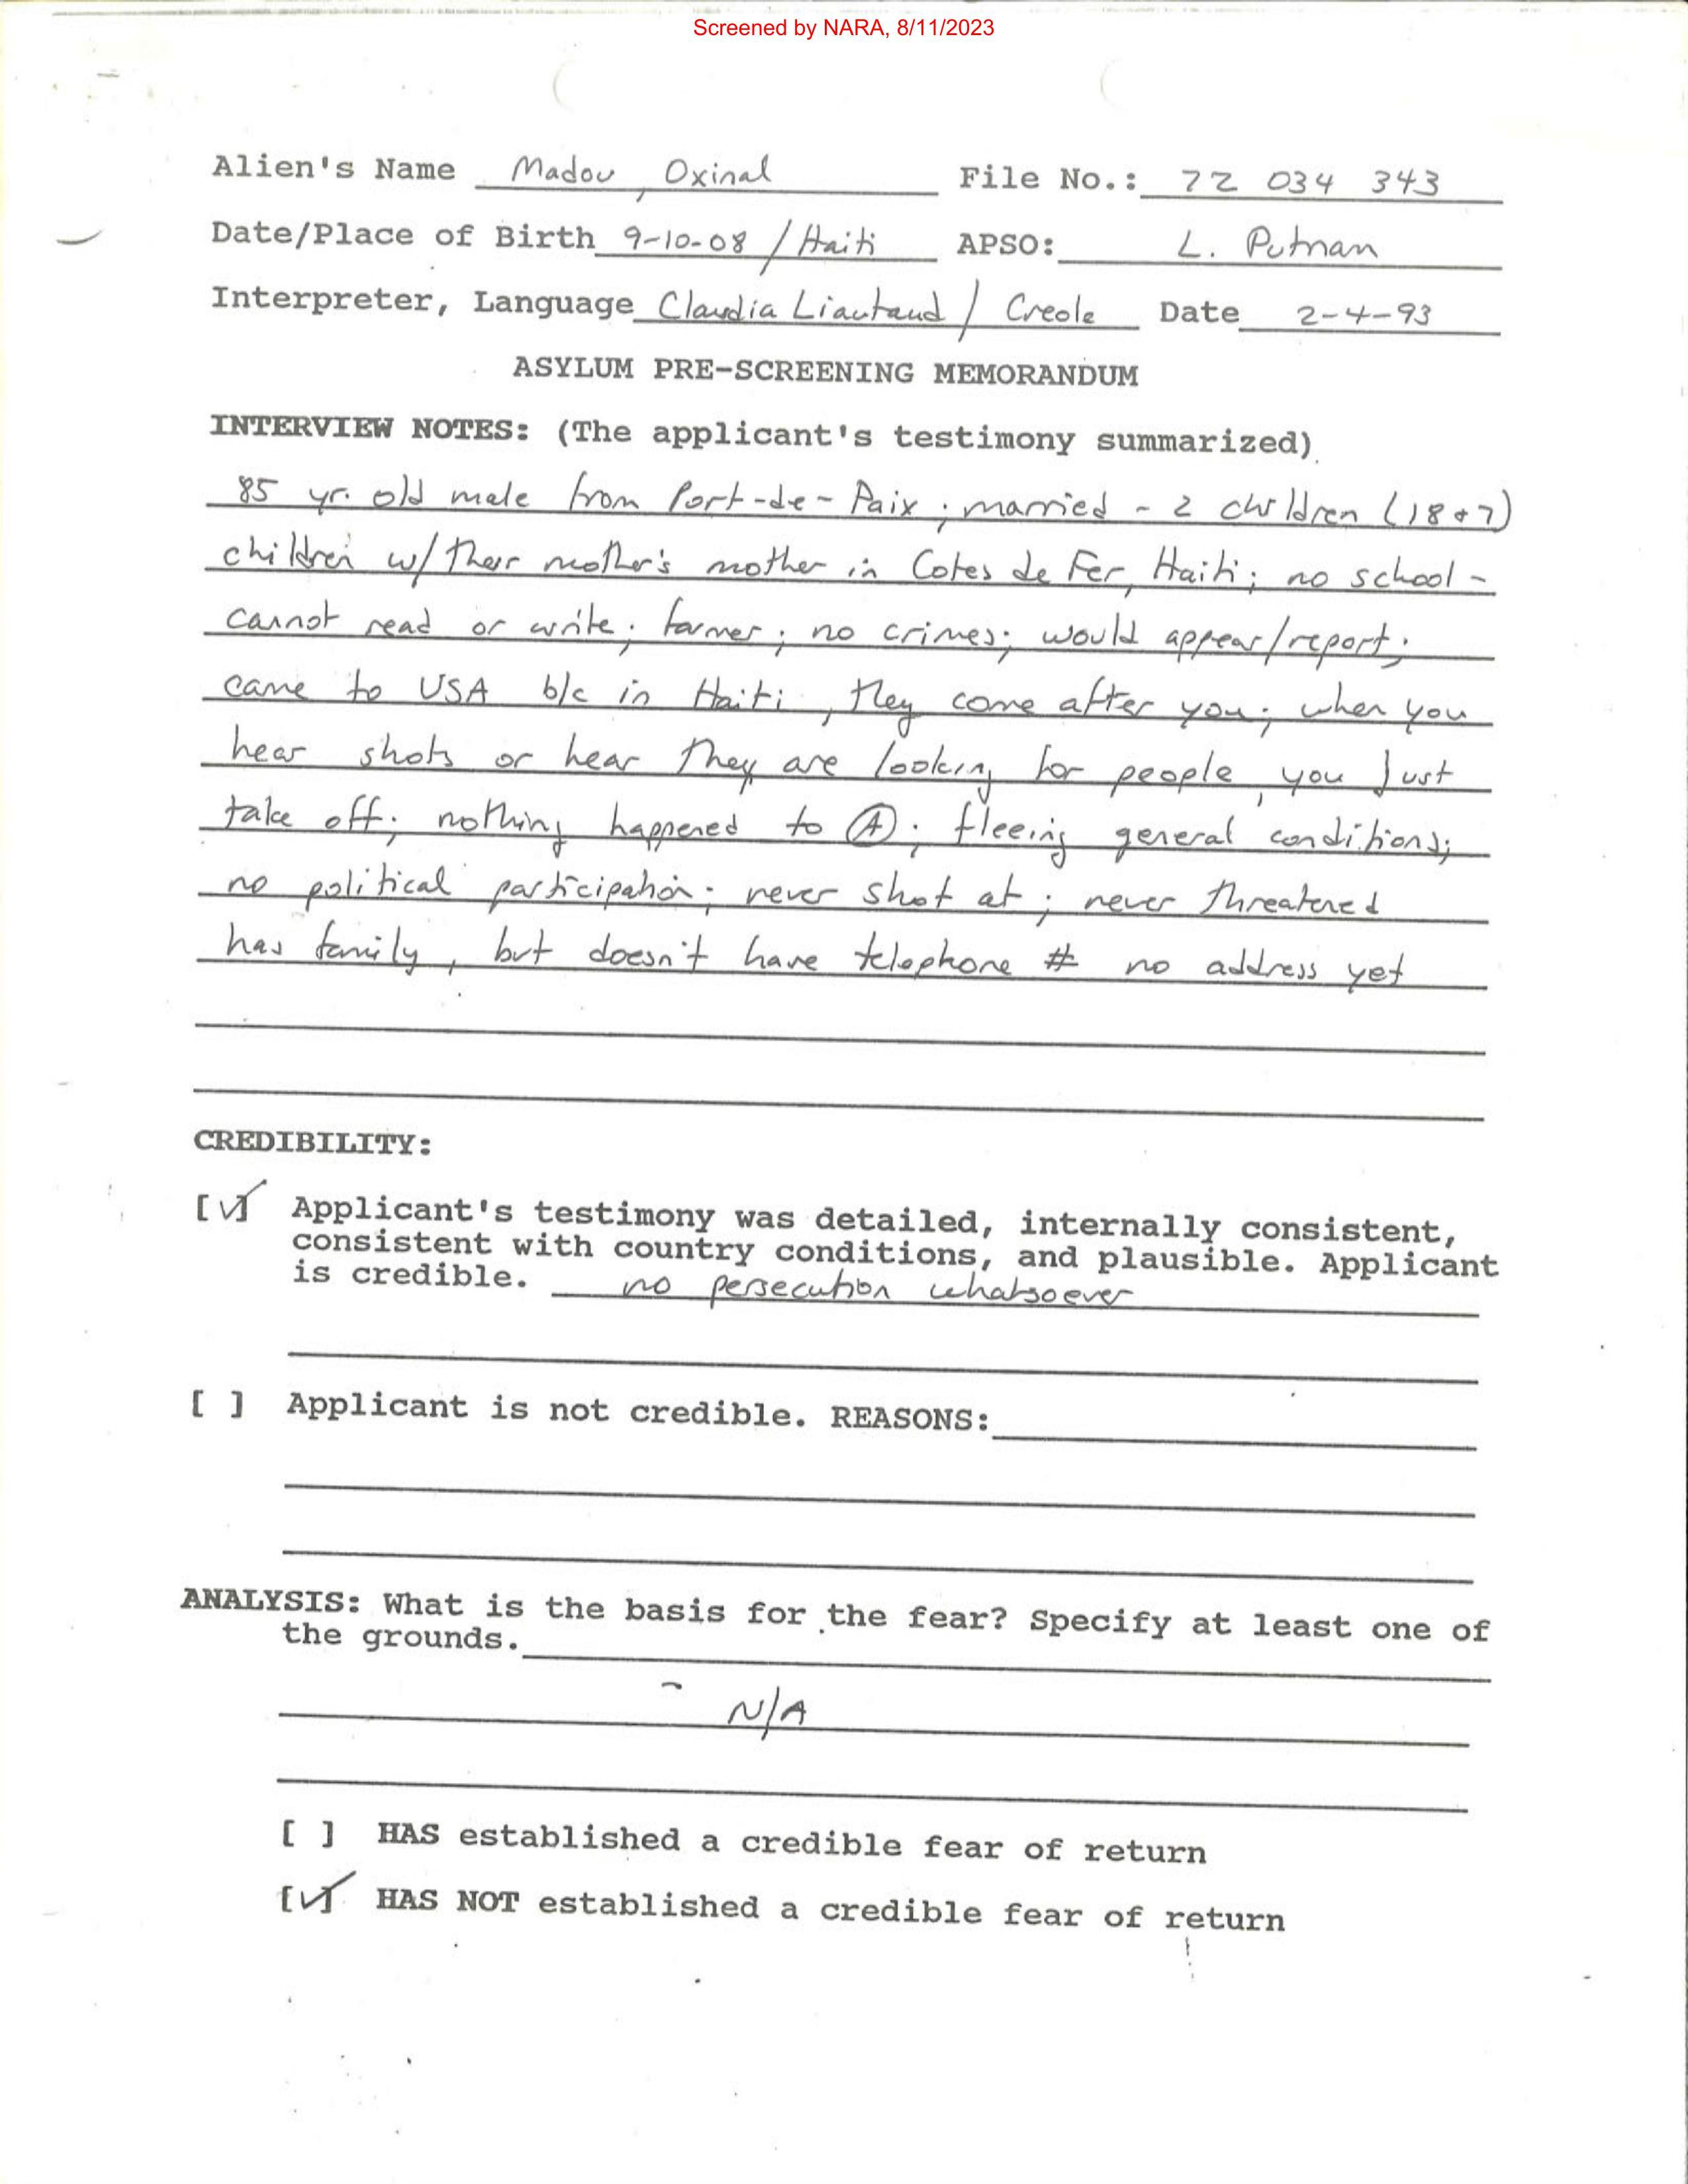 Screened by NARA, 8/11/2023
Alien's Name Madou, Oxinal File No.: 72 034 343
Date/Place of Birth 9-10-08 / Haiti APSO: L. Putnam
Interpreter, Language Claudia Liautaud / Creole Date 2-4-93
ASYLUM PRE-SCREENING MEMORANDUM
INTERVIEW NOTES: (The applicant's testimony summarized)
85 yr. old male from Port-de-Paix; married - 2 children (18+7)
children w/ their mother's mother in Cotes de Fer, Haiti; no school -
cannot read or write; farmer; no crimes; would appear/report;
came to USA b/c in Haiti, they come after you; when you
hear shots or hear they are looking for people, you just
take off; nothing happened to Ⓐ; fleeing general conditions;
no political participation; never shot at; never threatened
has family, but doesn't have telephone # no address yet
CREDIBILITY:
[✓] Applicant's testimony was detailed, internally consistent,
consistent with country conditions, and plausible. Applicant
is credible. no persecution whatsoever
[ ] Applicant is not credible. REASONS:
ANALYSIS: What is the basis for the fear? Specify at least one of
the grounds.
N/A
[ ] HAS established a credible fear of return
[✓] HAS NOT established a credible fear of return